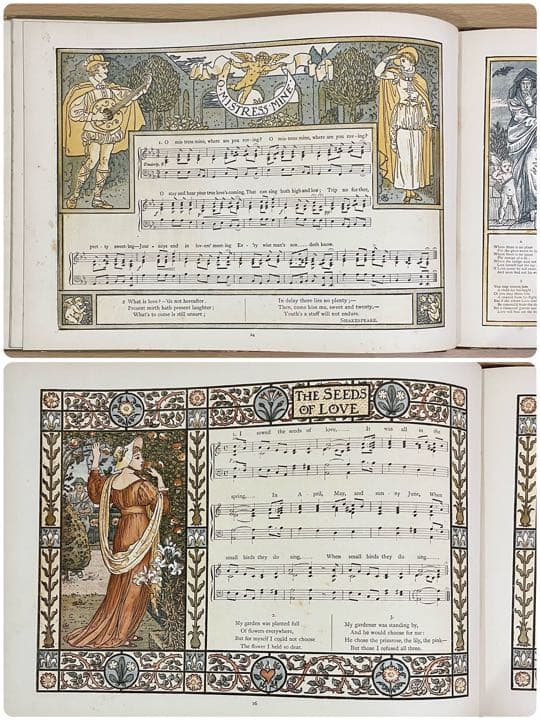 O MISTRESS MINE
1. O mis-tress mine, where are you rov-ing? O mis-tress mine, where are you rov-ing?
O stay and hear your true love's coming, That can sing both high and low; Trip no fur-ther,
pret-ty sweet-ing—Jour-neys end in lov-ers' meet-ing Ev-'ry wise man's son..... doth know.
2 What is love?—'tis not hereafter,
Present mirth hath present laughter;
What's to come is still unsure;
In delay there lies no plenty;—
Then, come kiss me, sweet and twenty,—
Youth's a stuff will not endure.
SHAKESPEARE.
24
THE SEEDS
OF LOVE
1. I sowed the seeds of love,..... It was all in the
spring,..... In A pril, May, and sun ny June, When
small birds they do sing,..... When small birds they do sing.....
2.
My garden was planted full
Of flowers everywhere,
But for myself I could not choose
The flower I held so dear.
3.
My gardener was standing by,
And he would choose for me:
He chose the primrose, the lily, the pink—
But those I refused all three.
26